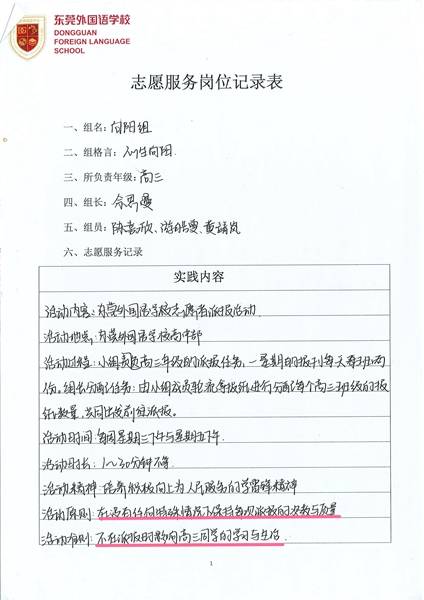 东莞外国语学校
DONGGUAN
FOREIGN LANGUAGE
SCHOOL
志愿服务岗位记录表
一、组名：向阳组
二、组格言：人生向阳.
三、所负责年级：高三
四、组长：佘思曼
五、组员：陈嘉欣、游皓雯、黄靖岚
六、志愿服务记录
实践内容
活动内容：东莞外国语学校志愿者派报活动
活动地点：东莞外国语学校高中部
活动过程：小组负责高三年级的派报任务，一星期的报刊每天每班两
份。组长分配任务：由小组成员轮流将报纸进行分配每个高三班级的报
纸数量，共同出发前往派报。
活动时间：每周星期三下午与星期五下午.
活动时长：1~30分钟不等.
活动精神：培养积极向上为人民服务的学雷锋精神
活动原则：在没有任何特殊情况下保持每次派报的次数与质量
活动准则：不在派报时影响高三同学的学习与生活.
1